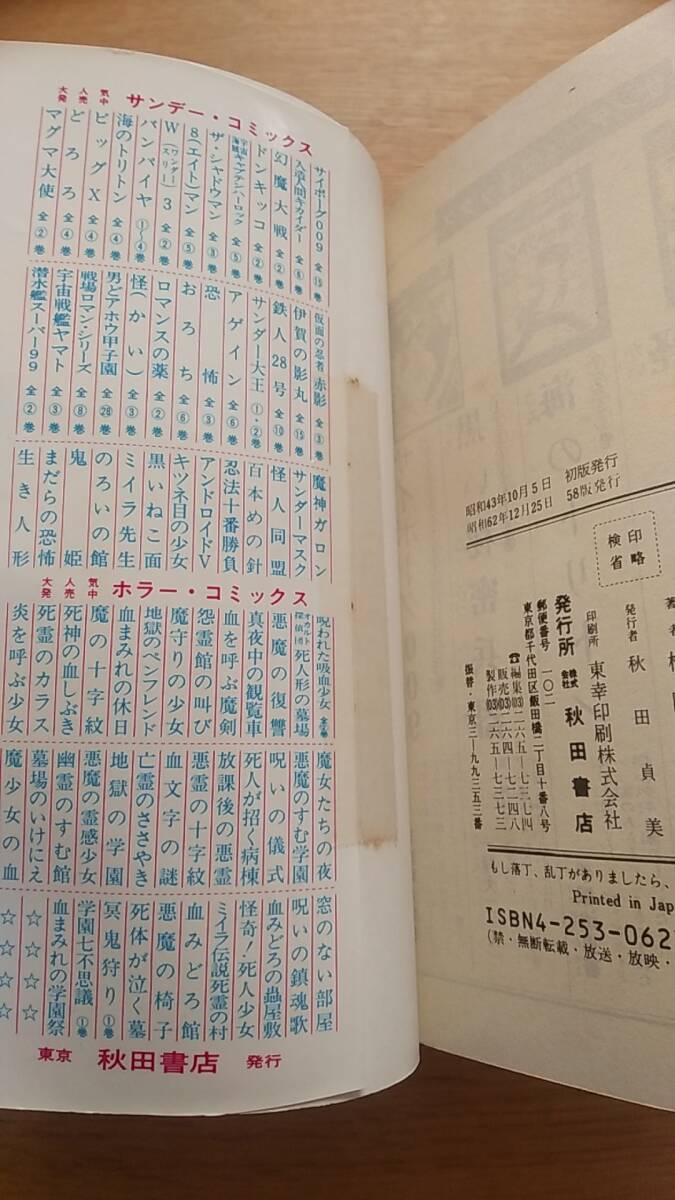 大人気発売中
サンデー・コミックス
サイボーグ009 全⑮巻
人造人間キカイダー 全⑥巻
幻魔大戦 全②巻
ドンキッコ 全②巻
宇宙海賊キャプテンハーロック 全⑤巻
ザ・シャドウマン 全③巻
8(エイト)マン 全⑤巻
W(ワンダースリー)3 全②巻
バンパイヤ ①〜④巻
海のトリトン 全④巻
ビッグX 全④巻
どろろ 全④巻
マグマ大使 全②巻
仮面の忍者 赤影 全③巻
伊賀の影丸 全⑮巻
鉄人28号 全⑩巻
サンダー大王 ①・②巻
アゲイン 全⑥巻
恐怖 全③巻
おろち 全⑥巻
ロマンスの薬 全②巻
怪(かい) 全③巻
男どアホウ甲子園 全㉘巻
戦場ロマン・シリーズ 全⑧巻
宇宙戦艦ヤマト 全③巻
潜水艦スーパー99 全②巻
魔神ガロン
サンダーマスク
怪人同盟
百本めの針
忍法十番勝負
アンドロイドV
キツネ目の少女
黒いねこ面
ミイラ先生
のろいの館
鬼姫
まだらの恐怖
生き人形
大人気発売中
ホラー・コミックス
呪われた吸血少女
オカルト探偵団 死人形の墓場
悪魔の復讐
真夜中の観覧車
血を呼ぶ魔剣
怨霊館の叫び
魔守りの少女
地獄のペンフレンド
血まみれの休日
魔の十字紋
死神の血しぶき
死霊のカラス
炎を呼ぶ少女
魔女たちの夜
悪魔のすむ学園
呪いの儀式
死人が招く病棟
放課後の悪霊
悪霊の十字紋
血文字の謎
亡霊のささやき
地獄の学園
悪魔の霊感少女
幽霊のすむ館
墓場のいけにえ
魔少女の血
窓のない部屋
呪いの鎮魂歌
血みどろの蟲屋敷
怪奇!死人少女
ミイラ伝説死霊の村
血みどろ館
悪魔の椅子
死体が泣く墓
冥鬼狩り ①巻
学園七不思議 ①巻
血まみれの学園祭
☆☆☆☆
☆☆☆☆
東京 秋田書店 発行
昭和43年10月5日 初版発行
昭和62年12月25日 58版発行
検印省略
発行者 秋田貞美
印刷所 東幸印刷株式会社
発行所 株式会社 秋田書店
郵便番号 一〇二
東京都千代田区飯田橋二丁目十番八号
☎編集(03)二六五―七三七四
販売(03)二六四―七二四八
製作(03)二六五―七三七三
振替・東京三―九九三五三番
もし落丁、乱丁がありましたら、
Printed in Jap
ISBN4-253-062
(禁・無断転載・放送・放映・